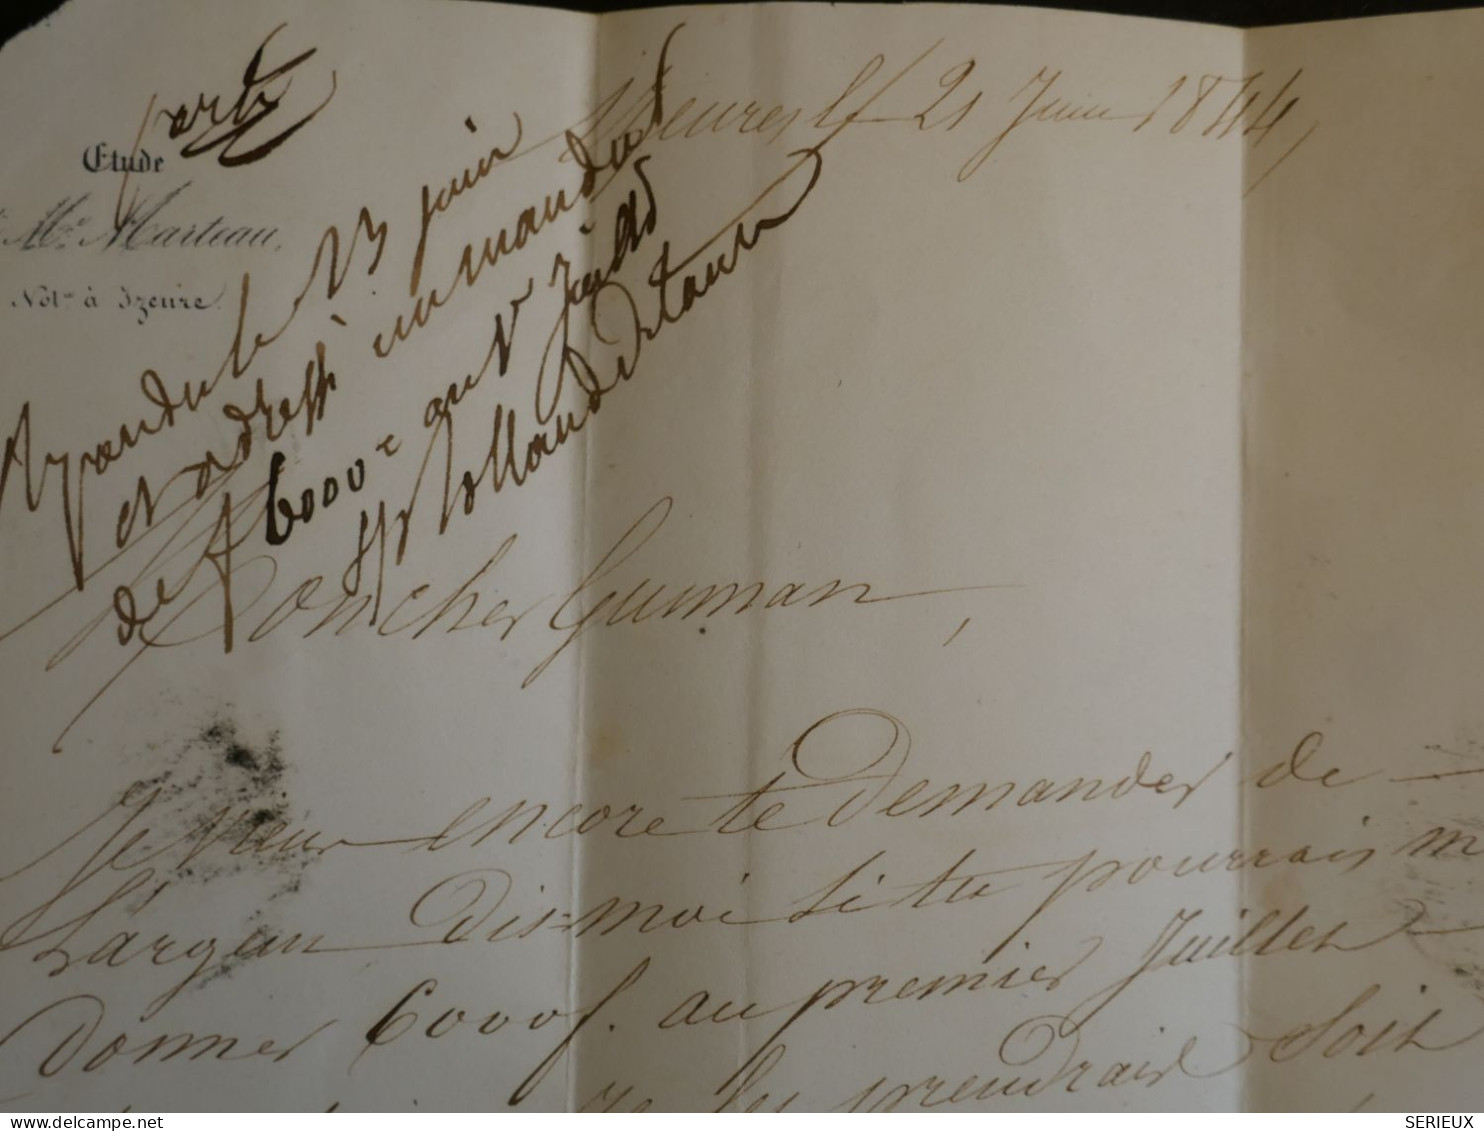 Etude
Me Marteau,
Notre à Izeure.
Yzeure le 21 Juin 1844,
Repondu le 23 juin
et adressé un mandat
de f 6000 c au 5 Juillet
sr hollander
Mon cher Guman,
Je viens encore te demander de
L'argeau dis-moi si tu pourrais m
donner 6000 f. au premier Juillet
je les prendrais soit
SERIEUX